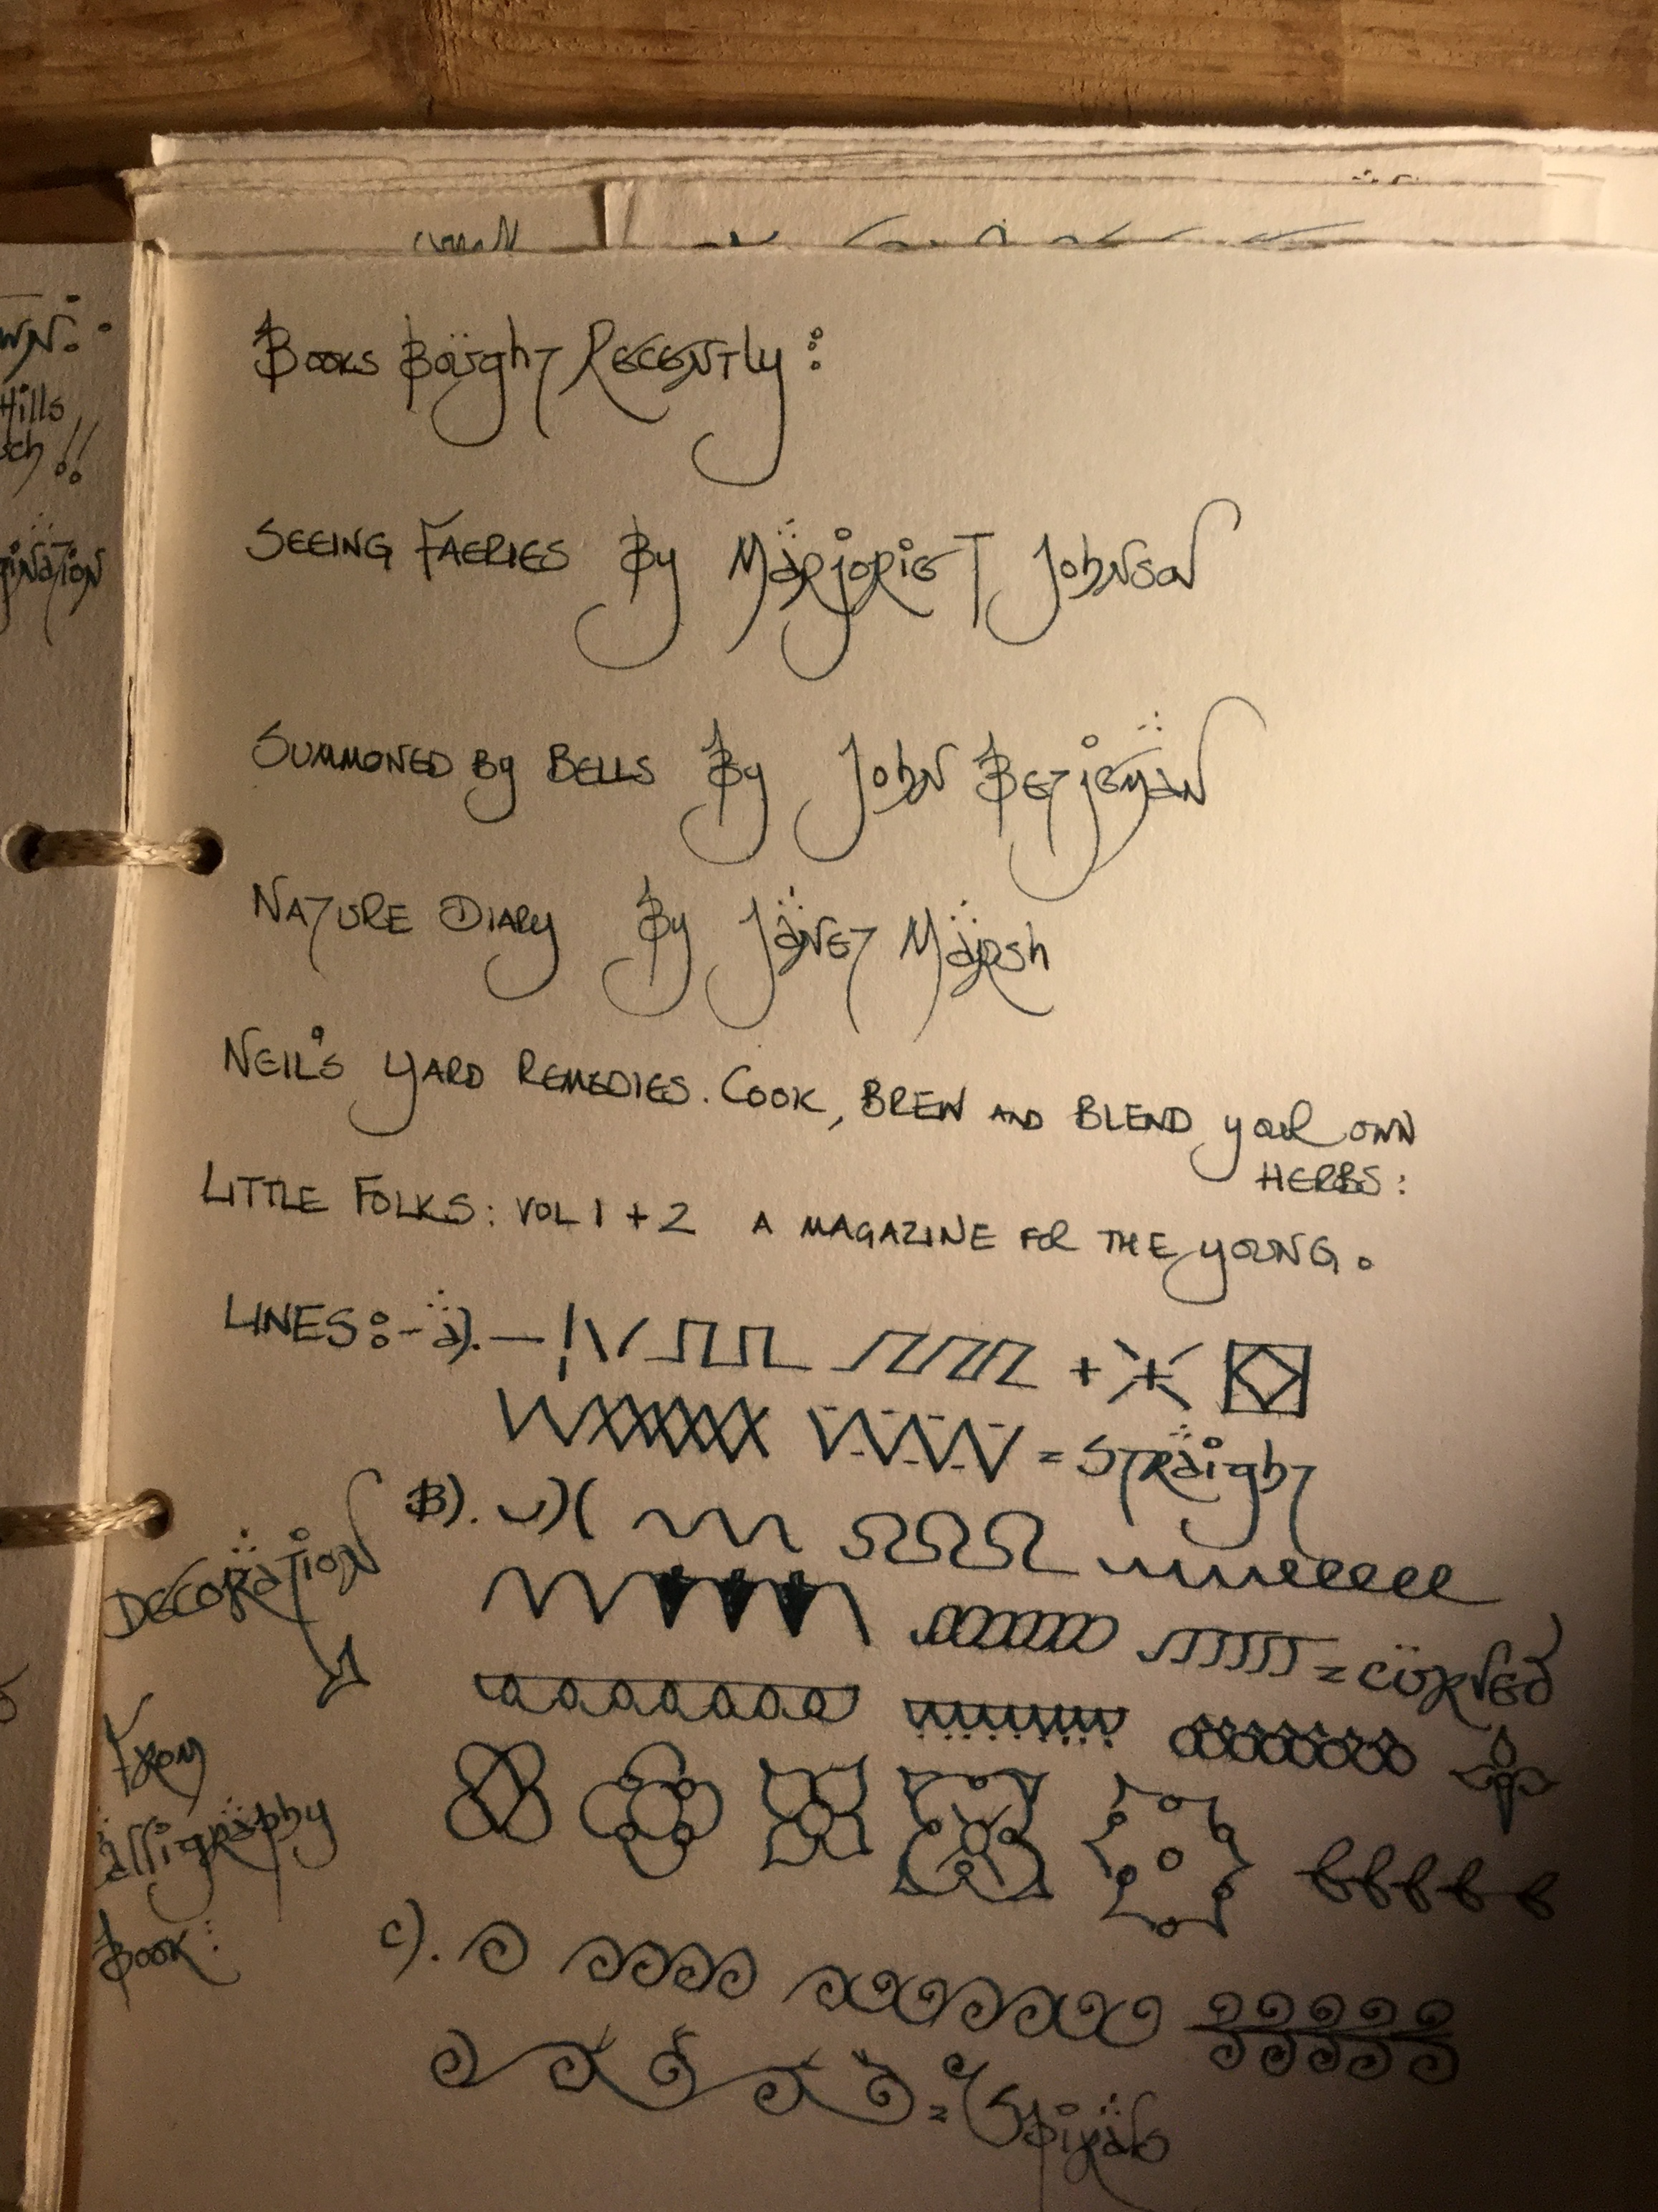 Books Bought Recently:
SEEING FAERIES By Marjorie T Johnson
SUMMONED By BELLS By John Betjeman
NATURE DIARY By Janet Marsh
NEIL'S YARD REMEDIES. COOK, BREW AND BLEND your OWN
HERBS:
LITTLE FOLKS: VOL 1 + 2 A MAGAZINE FOR THE YOUNG.
LINES:- a).
= Straight
B).
= Curved
C).
= Spirals
Decoration
From
Calligraphy
Book:
Hills